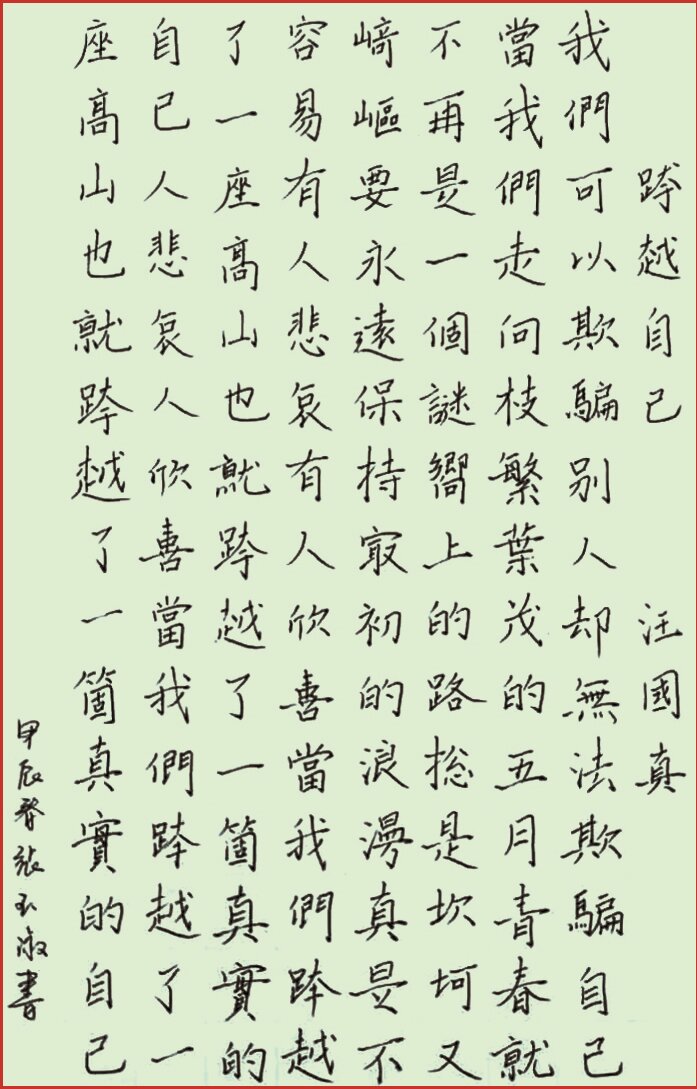 跨越自己 汪國真
我們可以欺騙别人却無法欺騙自己
當我們走向枝繁葉茂的五月青春就
不再是一個謎嚮上的路総是坎坷又
崎嶇要永遠保持㝡初的浪漫真是不
容易有人悲哀有人欣喜當我們跨越
了一座髙山也就跨越了一箇真實的
自己人悲哀人欣喜當我們跨越了一
座髙山也就跨越了一箇真實的自己
甲辰春張玉淑書